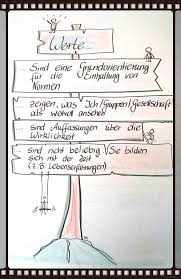 Werte
Sind eine Grundorientierung
für die Einhaltung von
Normen
zeigen, was Ich/Gruppen/Gesellschaft
als wertvoll ansehen
sind Auffassungen über die
Wirklichkeit
sind nicht beliebig / Sie bilden
sich mit der Zeit
(z.B. Lebenserfahrungen)